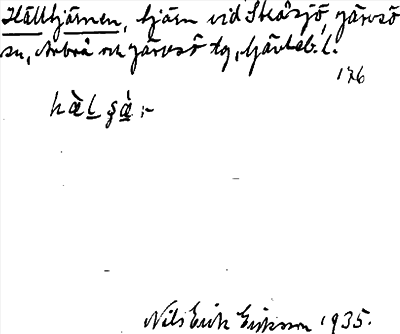 Hälltjärnen, tjärn vid Skåsjö, Järvsö
sn, Arbrå och Järvsö tg, Gävleb. l.
176
Nils Erik Eriksson 1935.